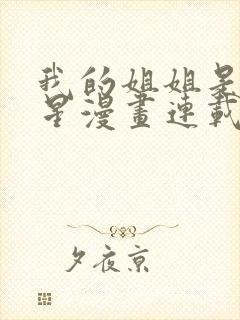 我的姐姐是
星漫畫連載
夕夜京